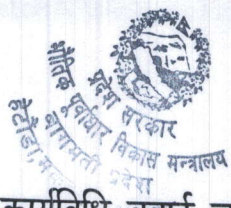 प्रदेश सरकार
भौतिक पूर्वाधार विकास मन्त्रालय
बागमती प्रदेश
हेटौंडा,
कार्यविधि